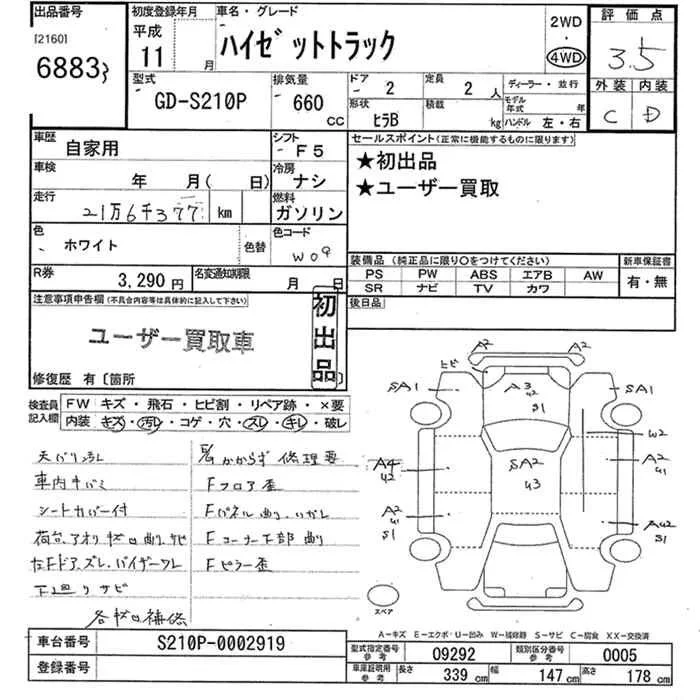 出品番号 初度登録年月 車名・グレード 2WD 評価点
[2160] 平成 ハイゼットトラック 4WD 3.5
6883 11 月
型式 排気量 ドア 2 定員 2 人 ディーラー・並行 外装 内装
GD-S210P 660 CC 形状 ヒラB 積載 kg モデル年式 年 ハンドル 左・右 C D
車歴 自家用 シフト F5 セールスポイント(正常に機能するものに限ります)
車検 年 月( 日) 冷房 ナシ ★初出品
走行 21万6千377 km 燃料 ガソリン ★ユーザー買取
色 ホワイト 色替 色コード W09
装備品(純正品に限り○をつけてください) 新車保証書
R券 3,290円 名変通知期限 月 日 PS PW ABS エアB AW 有・無
SR ナビ TV カワ
注意事項申告欄(不具合内容等は具体的に記入して下さい) 初出品 後日品
ユーザー買取車
修復歴 有〔箇所
検査員記入欄 FW キズ・飛石・ヒビ割・リペア跡・×要
内装 キズ・汚レ・コゲ・穴・スレ・キレ・破レ
天バリ汚レ
車内キバミ 修理要
シートカバー付 Fフロア歪
荷台、アオリ Fパネル曲り
左Fドア、ズレ、バイザーワレ Fコーナー下部曲り
下廻りサビ Fピラー歪
補修
A2 A2
ヒビ
SA1 A3 U2 S1 SA1
W2
A4 U2 SA2 U3 A2 U1
A2 U1 S1 AU2 S1
スペア
A-キズ E-エクボ・U-凹み W-補修跡 S-サビ C-腐食 XX-交換済
車台番号 S210P-0002919
登録番号
型式指定番号 参考 09292 類別区分番号 参考 0005
車庫証明用 参考 長さ 339 cm 幅 147 cm 高さ 178 cm